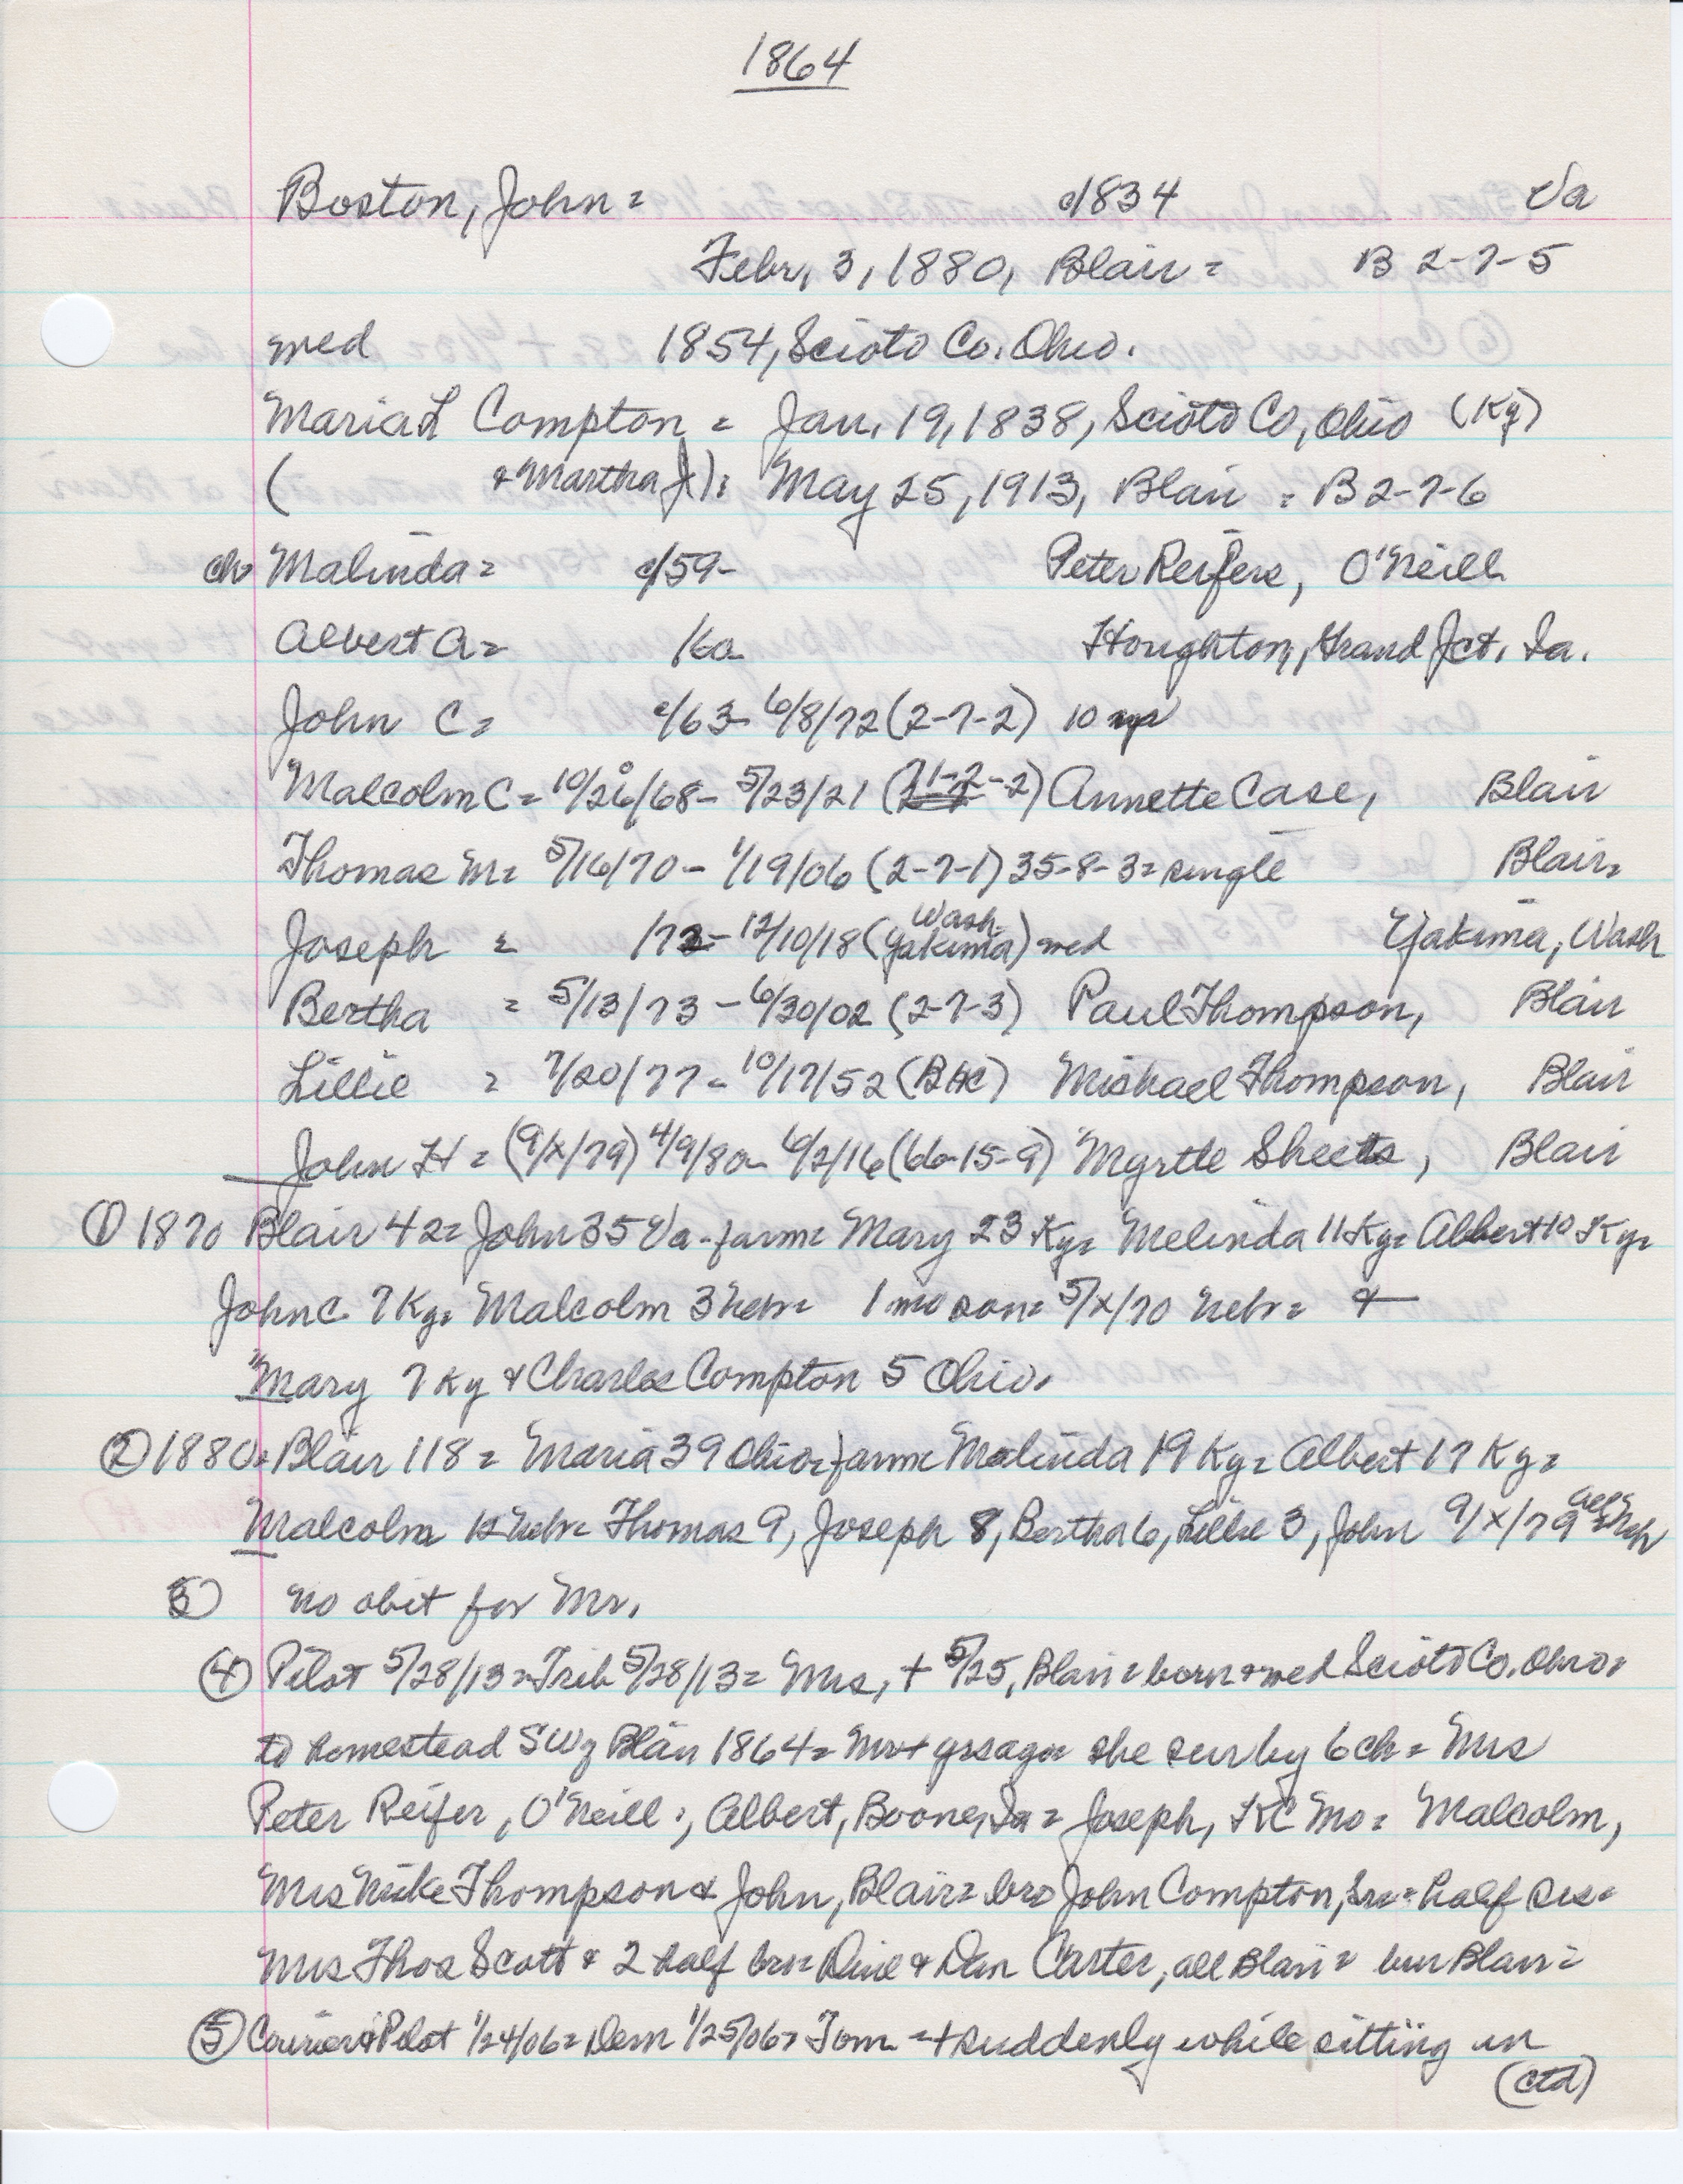 1864
Boston, John = c/1834 Va
Febr, 3, 1880, Blair = B 2-7-5
med 1854, Scioto Co. Ohio.
Maria L Compton = Jan. 19, 1838, Scioto Co, Ohio (Ky)
( & Martha J) = May 25, 1913, Blair = B 2-7-6
ch Malinda = c/59- Peter Reifers, O'Neill
Albert A = /60- Houghton, Grand Jct. Ia.
John C = c/63- 6/8/72 (2-7-2) 10 yrs
Malcolm C = 10/26/68- 5/23/21 (1-2-2) Annette Case, Blair
Thomas M = 5/16/70 - 1/19/06 (2-7-1) 35-8-3 = single Blair =
Joseph = /72- 12/10/18 (Yakima Wash.) med Yakima, Wash
Bertha = 5/13/73 - 6/30/02 (2-7-3) Paul Thompson, Blair
Lillie = 7/20/77 - 10/17/52 (BHC) Michael Thompson, Blair
John H = (9/x/79) 4/9/80- 6/2/16 (66-15-9) Myrtle Sheets, Blair
① 1870 Blair 42 = John 35 Va - farm = Mary 23 Ky = Melinda 11 Ky = Albert 10 Ky =
John C. 7 Ky = Malcolm 3 Nebr = 1 mo son = 5/x/70 Nebr = &
Mary 7 Ky & Charles Compton 5 Ohio.
② 1880 = Blair 118 = Maria 39 Ohio = farm = Malinda 19 Ky = Albert 17 Ky =
Malcolm 12 Nebr = Thomas 9, Joseph 8, Bertha 6, Lillie 3, John 9/x/79 all Nebr
③ no obit for Mr.
④ Pilot 5/28/13 = Trib 5/28/13 = Mrs, + 5/25, Blair = born & med Scioto Co. Ohio =
to homestead SW of Blair 1864 = Mr + yrs ago = she sur by 6 ch = Mrs
Peter Reifer, O'Neill =, Albert, Boone, Ia = Joseph, KC Mo = Malcolm,
Mrs Mike Thompson & John, Blair = bro John Compton, Sr = half sis =
Mrs Thos Scott & 2 half bro = & Dan Carter, all Blair = bur Blair =
⑤ Courier & Pilot 1/24/06 = Dem 1/25/06 = Tom = + suddenly while sitting in
(ctd)